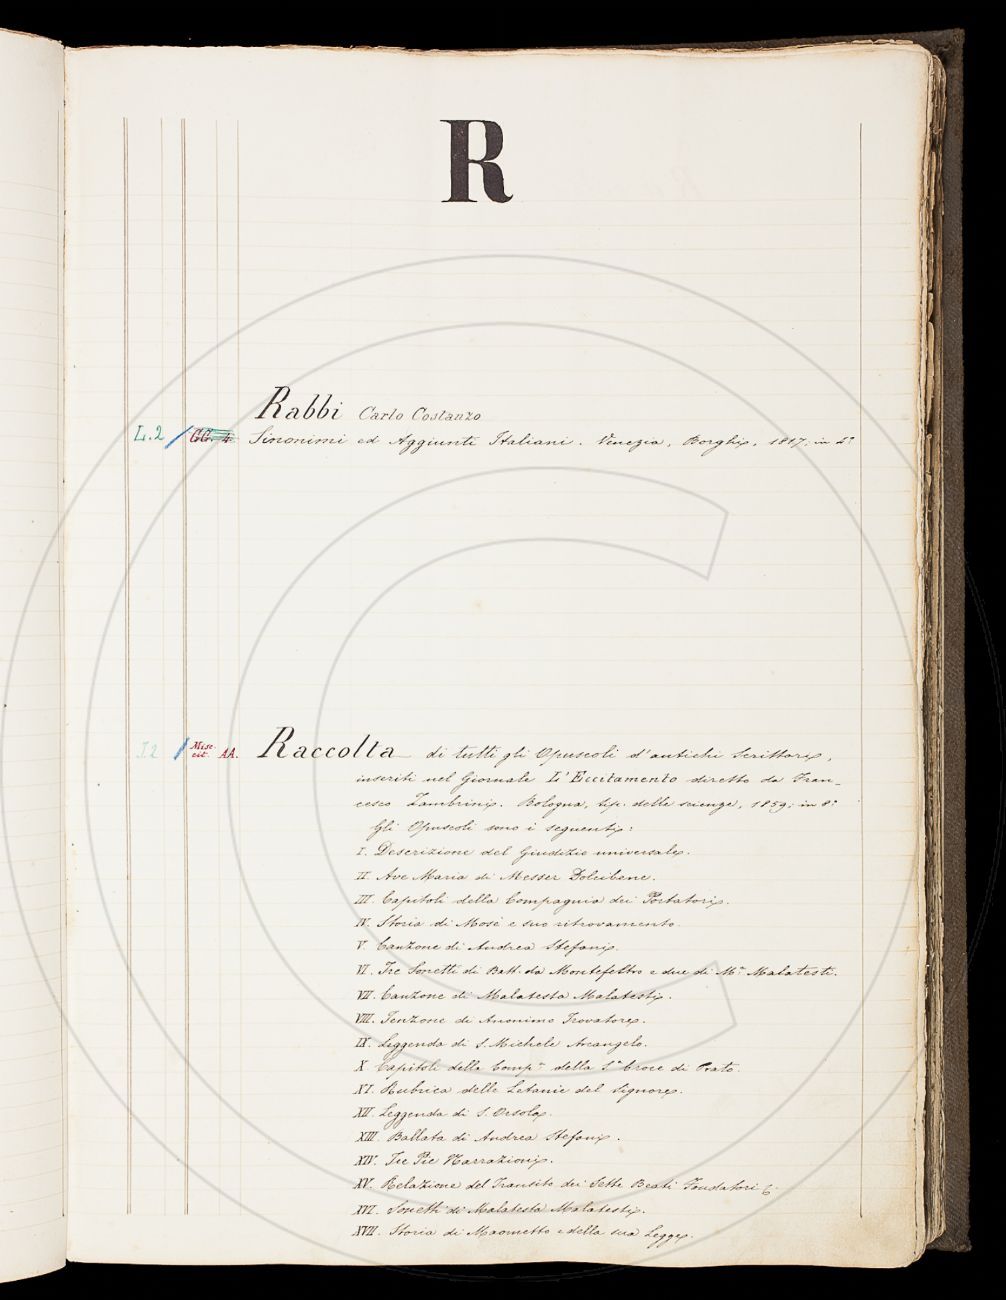 R
Rabbi Carlo Costanzo
L.2 / GG. 4. Sinonimi ed Aggiunti Italiani. Venezia, Borghi, 1817; in 4°
I.2 / Misc. cit. AA. Raccolta di tutti gli Opuscoli d'antichi Scrittori,
inseriti nel Giornale L'Eccitamento diretto da Fran-
cesco Zambrini. Bologna, tip. delle scienze, 1859; in 8°
Gli Opuscoli sono i seguenti:
I. Descrizione del Giudizio universale.
II. Ave Maria di Messer Dolcibene.
III. Capitoli della Compagnia dei Portatori.
IV. Storia di Mosè e suo ritrovamento.
V. Canzone di Andrea Stefani.
VI. Tre Sonetti di Batt. da Montefeltro e due di Mª Malatesti.
VII. Canzone di Malatesta Malatesti.
VIII. Tenzone di Anonimo Trovatore.
IX. Leggenda di S. Michele Arcangelo.
X. Capitoli della Compª della Sª Croce di Prato.
XI. Rubrica delle Letanie del Signore.
XII. Leggenda di S. Orsola.
XIII. Ballata di Andrea Stefani.
XIV. Tre Pie Narrazioni.
XV. Relazione del Transito dei Sette Beati Fondatori &
XVI. Sonetti di Malatesta Malatesti.
XVII. Storia di Maometto e della sua Legge.